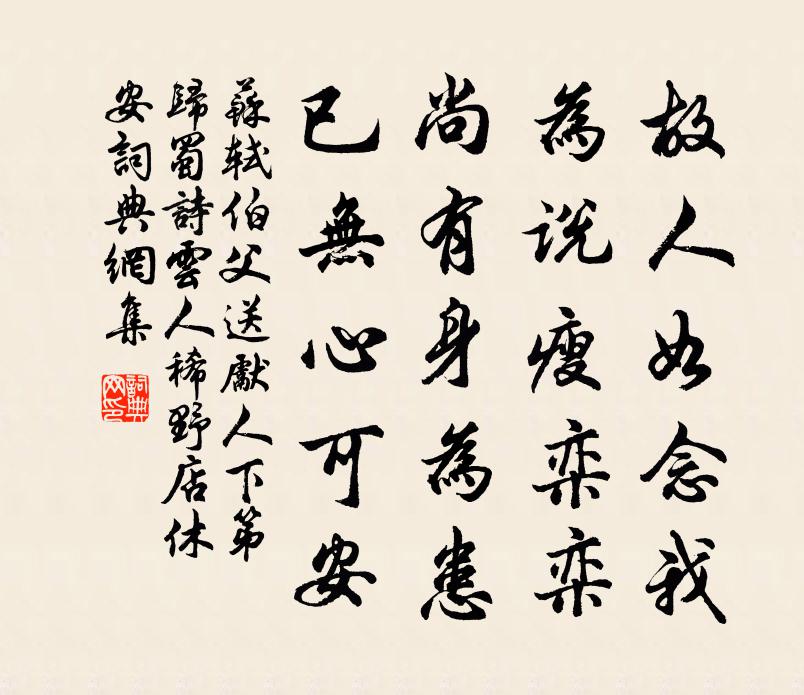 故人如念我
為说瘦栾栾
尚有身為患
已無心可安
蘇軾伯父送獻人下第
歸蜀詩雲人稀野店休
安詞典網集
詞典網印